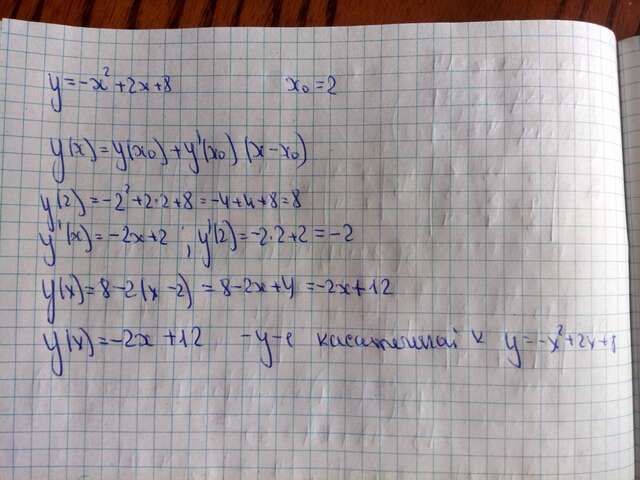 y=-x²+2x+8 x₀=2
y(x)=y(x₀)+y'(x₀)(x-x₀)
y(2)=-2²+2·2+8=-4+4+8=8
y'(x)=-2x+2 ; y'(2)=-2·2+2=-2
y(x)=8-2(x-2)=8-2x+4=-2x+12
y(x)=-2x+12 -у-е касательной к y=-x²+2x+8